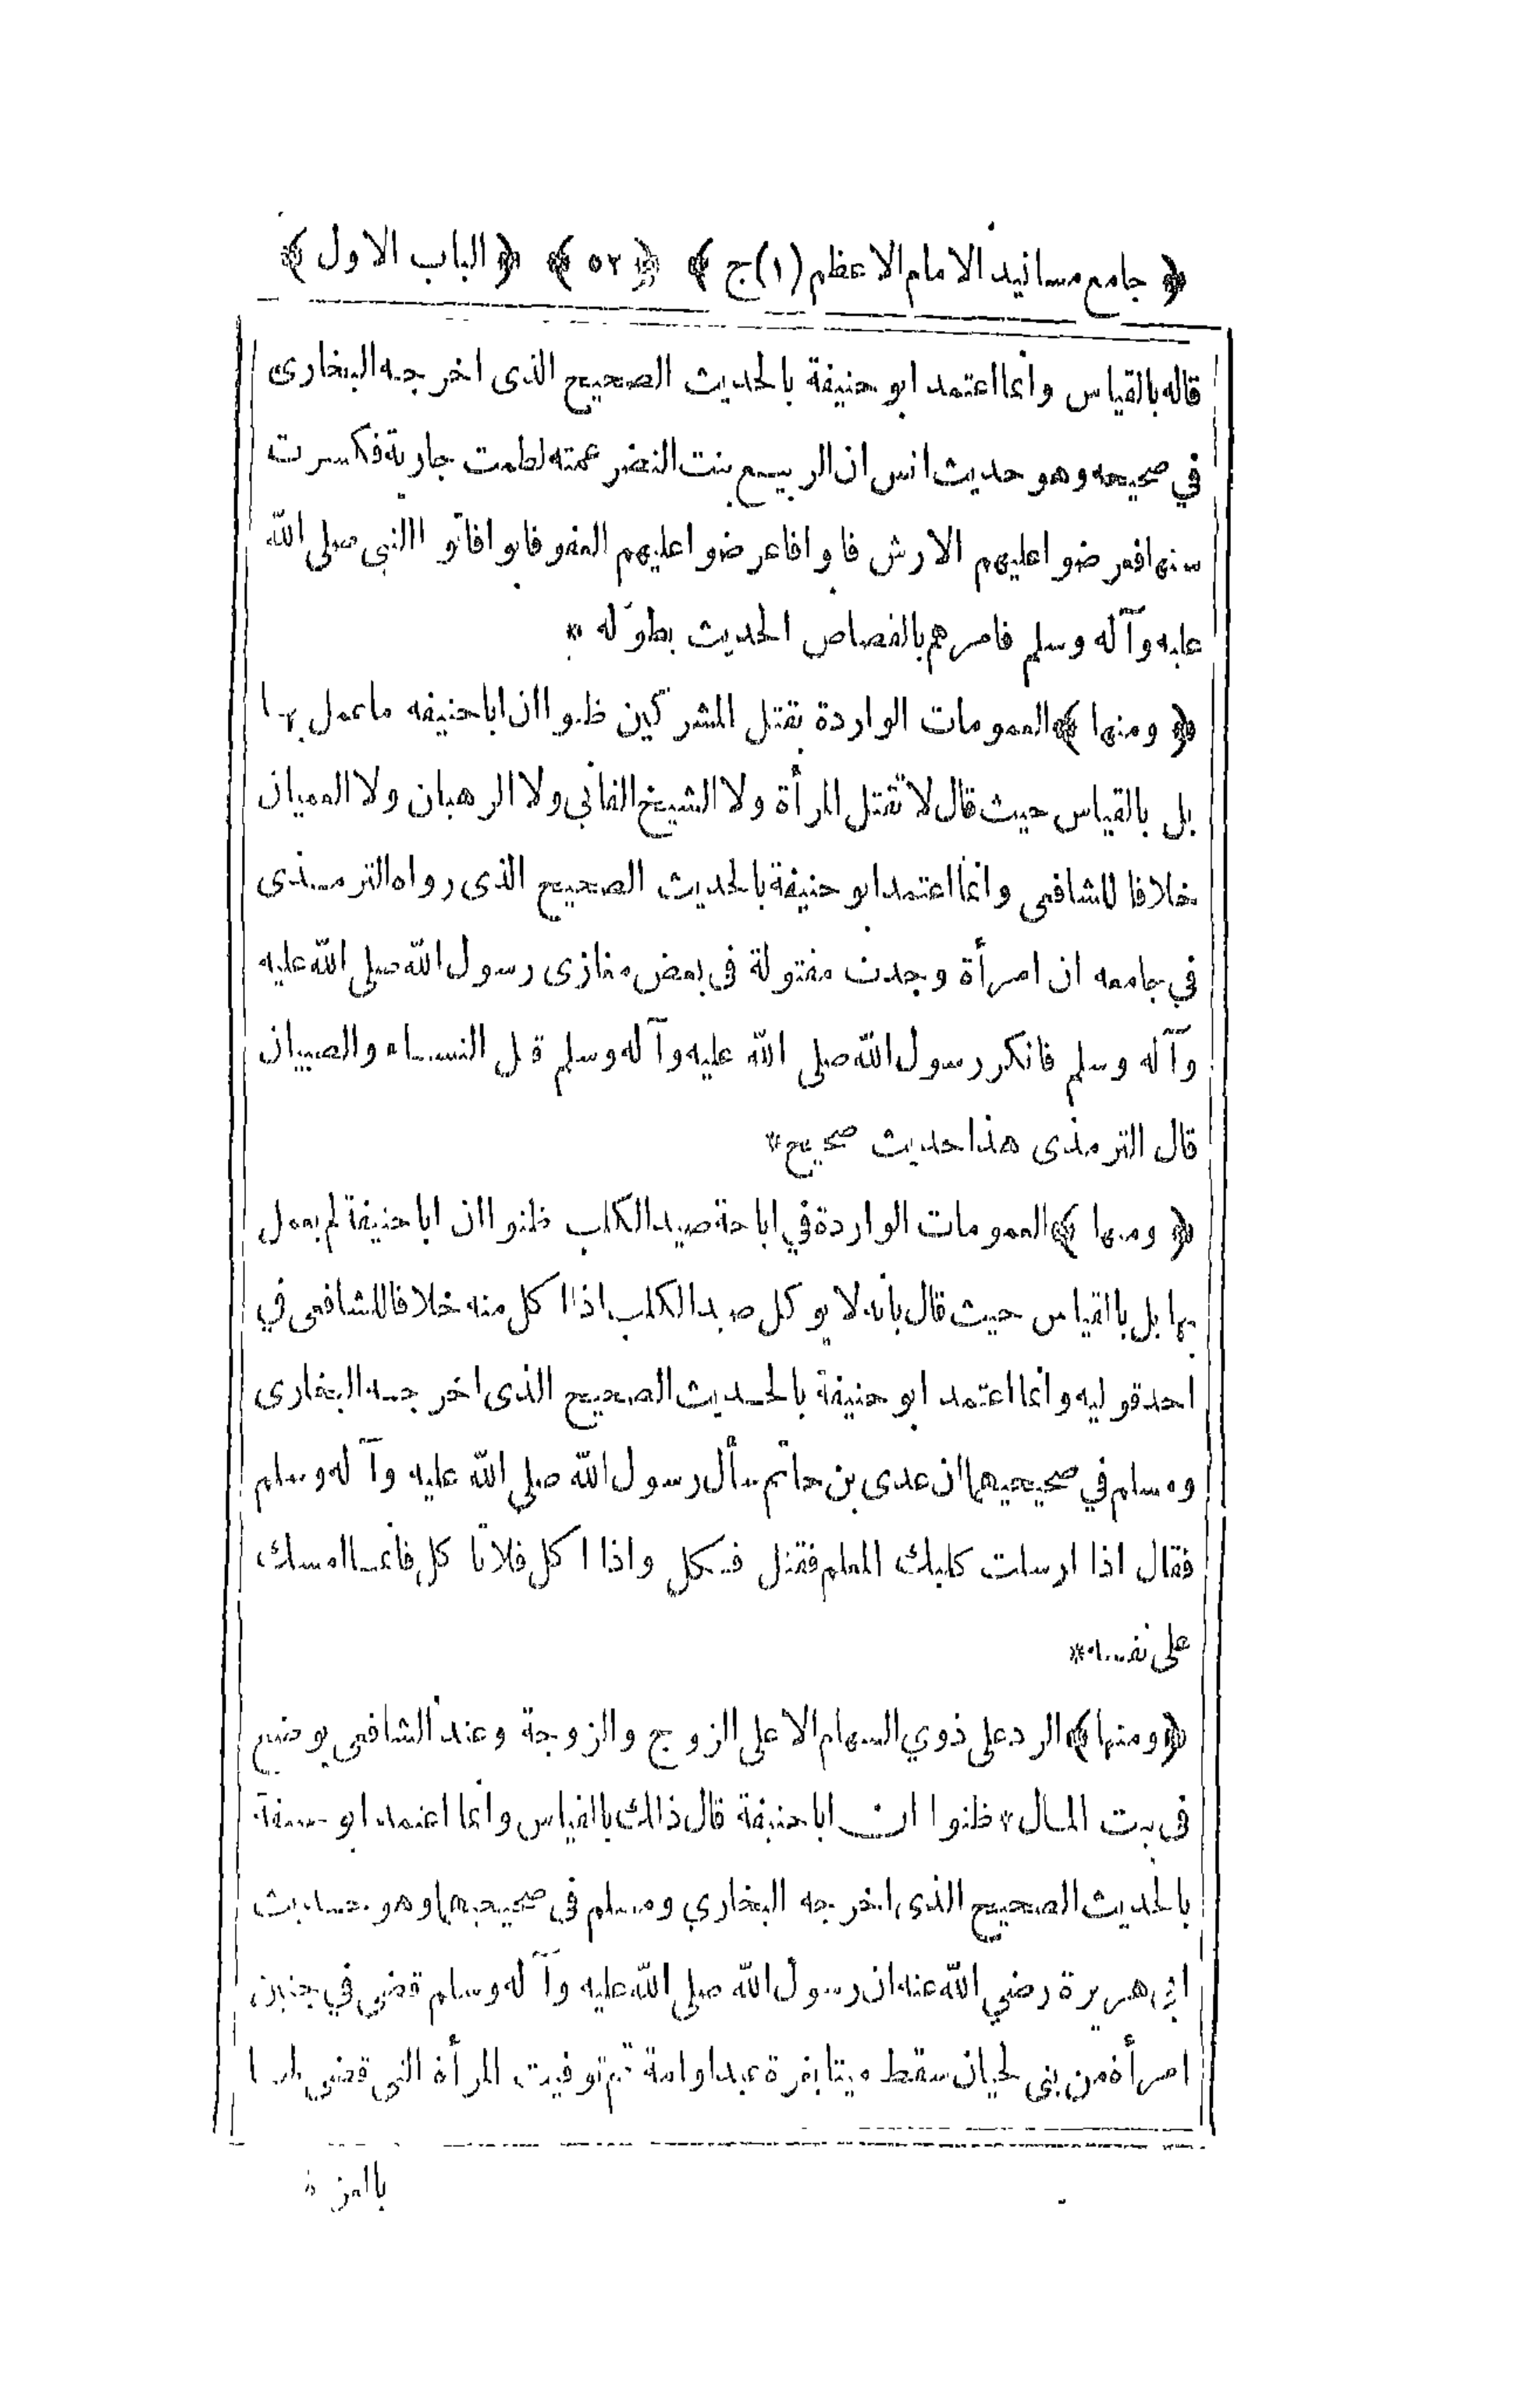 ﴿ جامع مسانيد الامام الاعظم (١) ج ﴾ ﴿ ٥٢ ﴾ ﴿ الباب الاول ﴾
قاله بالقياس وانما اعتمد ابو حنيفة بالحديث الصحيح الذى اخرجه البخارى
في صحيحه وهو حديث انس ان الربيع بنت النضر عمته لطمت جارية فكسرت
سنها فعرضوا عليهم الارش فابوا فاعرضوا عليهم العفو فابوا فاتوا النبى صلى الله
عليه وآله وسلم فامرهم بالقصاص الحديث بطوله *
﴿ ومنها ﴾ العمومات الواردة بقتل المشركين ظنوا ان ابا حنيفه ما عمل بها
بل بالقياس حيث قال لا تقتل المرأة ولا الشيخ الفانى ولا الرهبان ولا العميان
خلافا للشافعى وانما اعتمد ابو حنيفة بالحديث الصحيح الذى رواه الترمذى
في جامعه ان امرأة وجدت مقتولة فى بعض مغازى رسول الله صلى الله عليه
وآله وسلم فانكر رسول الله صلى الله عليه وآله وسلم قتل النساء والصبيان
قال الترمذى هذا حديث صحيح *
﴿ ومنها ﴾ العمومات الواردة في اباحة صيد الكلب ظنوا ان ابا حنيفة لم يعمل
بها بل بالقياس حيث قال بانه لا يوكل صيد الكلب اذا اكل منه خلافا للشافعى في
احد قوليه وانما اعتمد ابو حنيفة بالحديث الصحيح الذى اخرجه البخارى
ومسلم في صحيحيهما ان عدى بن حاتم سأل رسول الله صلى الله عليه وآله وسلم
فقال اذا ارسلت كلبك المعلم فقتل فكل واذا اكل فلا تاكل فانما امسك
على نفسه *
﴿ ومنها ﴾ الرد على ذوي السهام الا على الزوج والزوجة وعند الشافعى يوضع
فى بيت المال * ظنوا ان ابا حنيفة قال ذلك بالقياس وانما اعتمد ابو حنيفة
بالحديث الصحيح الذى اخرجه البخاري ومسلم فى صحيحيهما وهو حديث
ابى هريرة رضي الله عنه ان رسول الله صلى الله عليه وآله وسلم قضى في جنين
امرأة من بنى لحيان سقط ميتا بغرة عبد او امة ثم توفيت المرأة التى قضى لها
بالغرة